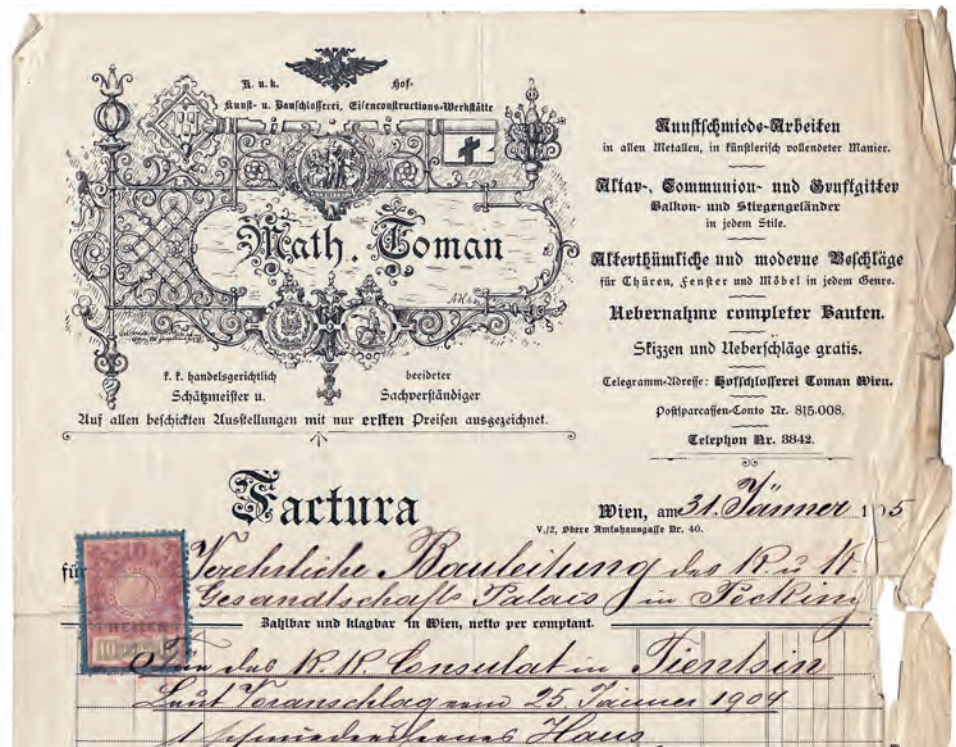 K. u. k. Hof-
Kunst- u. Bauschlosserei, Eisenconstructions-Werkstätte
Math. Toman
k. k. handelsgerichtlich beeideter
Schätzmeister u. Sachverständiger
Auf allen beschickten Ausstellungen mit nur ersten Preisen ausgezeichnet.
Kunstschmiede-Arbeiten
in allen Metallen, in künstlerisch vollendeter Manier.
Altar-, Communion- und Gruftgitter
Balkon- und Stiegengeländer
in jedem Stile.
Alterthümliche und moderne Beschläge
für Thüren, Fenster und Möbel in jedem Genre.
Uebernahme completer Bauten.
Skizzen und Ueberschläge gratis.
Telegramm-Adresse: Hofschlosserei Toman Wien.
Postsparcassen-Conto Nr. 815.008.
Telephon Nr. 3842.
Factura
Wien, am 31. Jänner 1905
V./2, Obere Amtshausgasse Nr. 40.
für Verehrliche Bauleitung des K. u. K.
Gesandtschafts Palais in Pecking
Zahlbar und klagbar in Wien, netto per comptant.
10
HELLER
Für das K. K. Consulat in Tientsin
Laut Voranschlag vom 25. Jänner 1904
1 schmiedeeisernes Haus